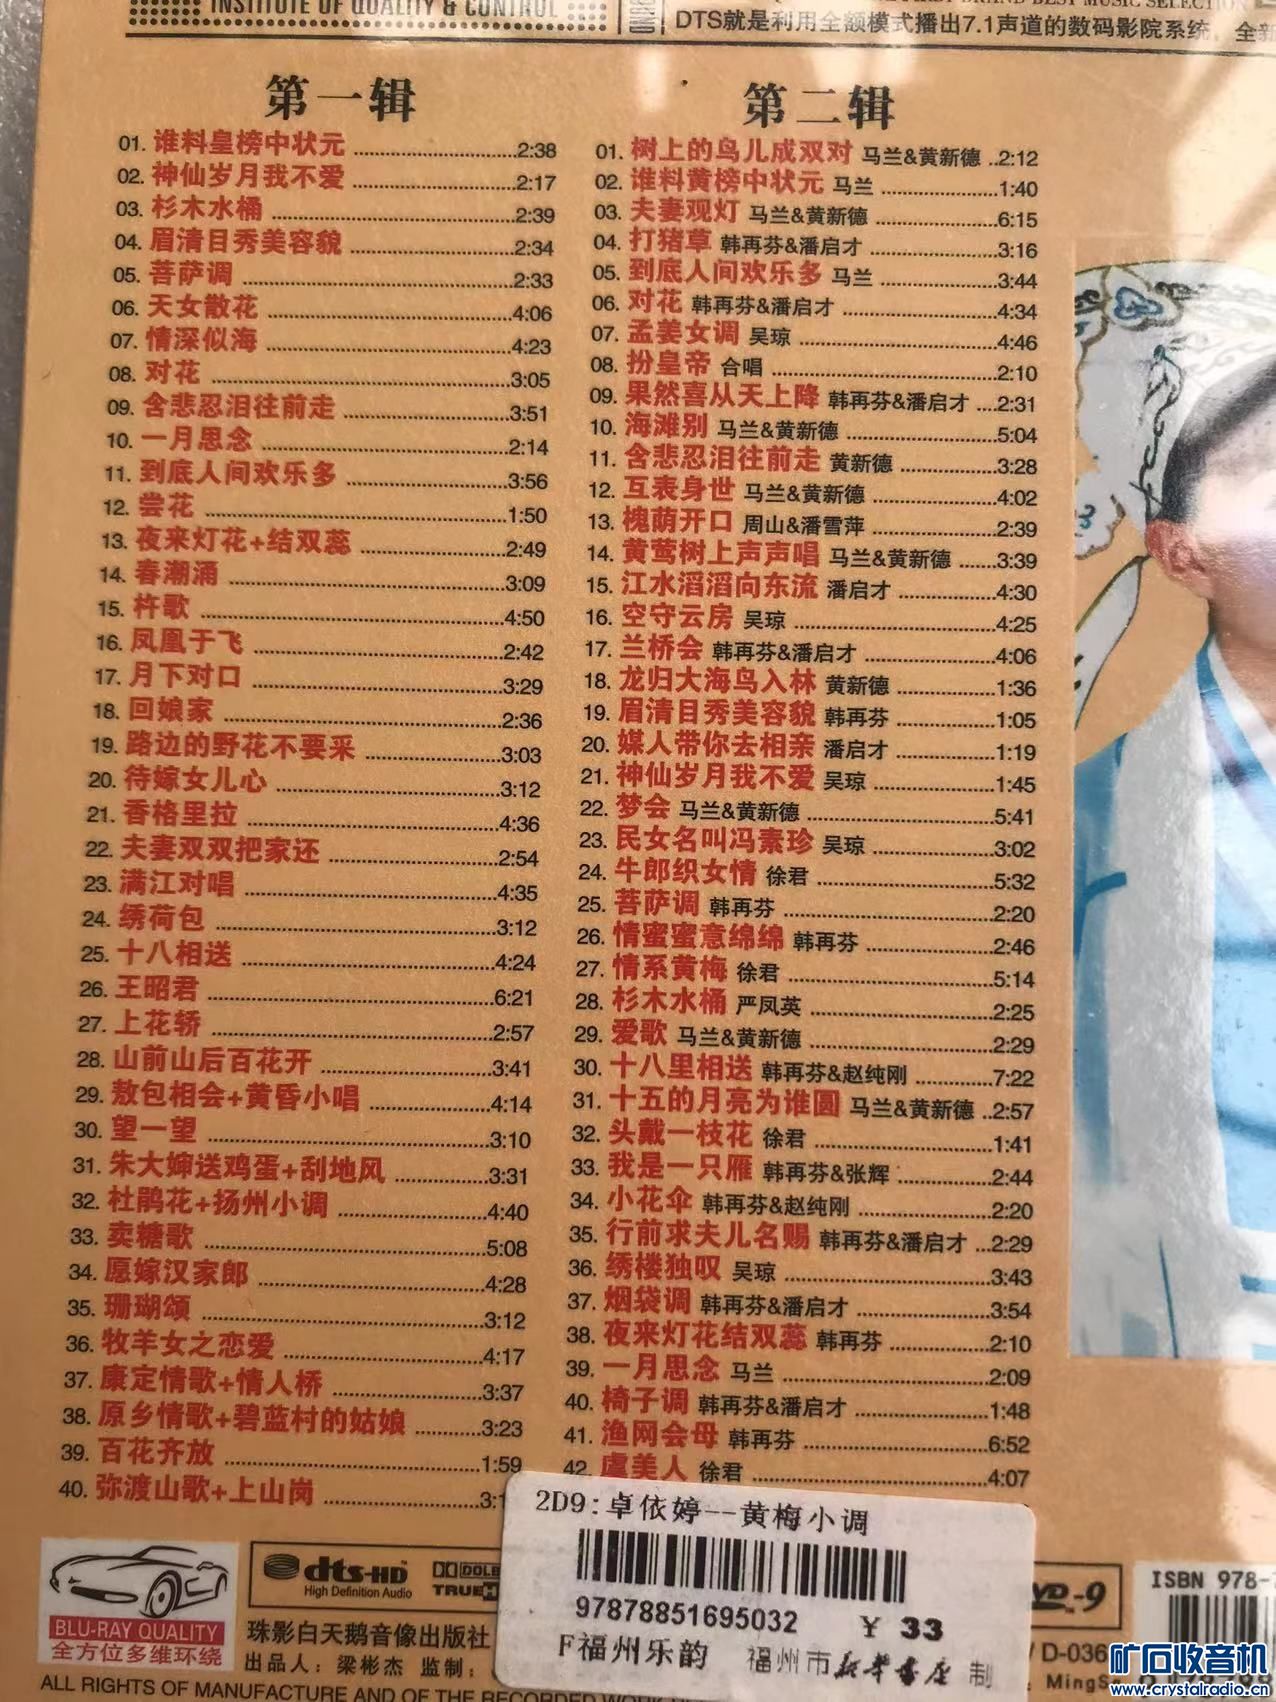 INSTITUTE OF QUALITY & CONTROL
BEST MUSIC SELECTION
DTS就是利用全额模式播出7.1声道的数码影院系统,全新
第一辑
01. 谁料皇榜中状元 2:38
02. 神仙岁月我不爱 2:17
03. 杉木水桶 2:39
04. 眉清目秀美容貌 2:34
05. 菩萨调 2:33
06. 天女散花 4:06
07. 情深似海 4:23
08. 对花 3:05
09. 含悲忍泪往前走 3:51
10. 一月思念 2:14
11. 到底人间欢乐多 3:56
12. 尝花 1:50
13. 夜来灯花+结双蕊 2:49
14. 春潮涌 3:09
15. 杵歌 4:50
16. 凤凰于飞 2:42
17. 月下对口 3:29
18. 回娘家 2:36
19. 路边的野花不要采 3:03
20. 待嫁女儿心 3:12
21. 香格里拉 4:36
22. 夫妻双双把家还 2:54
23. 满江对唱 4:35
24. 绣荷包 3:12
25. 十八相送 4:24
26. 王昭君 6:21
27. 上花轿 2:57
28. 山前山后百花开 3:41
29. 敖包相会+黄昏小唱 4:14
30. 望一望 3:10
31. 朱大婶送鸡蛋+刮地风 3:31
32. 杜鹃花+扬州小调 4:40
33. 卖糖歌 5:08
34. 愿嫁汉家郎 4:28
35. 珊瑚颂 3:12
36. 牧羊女之恋爱 4:17
37. 康定情歌+情人桥 3:37
38. 原乡情歌+碧蓝村的姑娘 3:23
39. 百花齐放 1:59
40. 弥渡山歌+上山岗
第二辑
01. 树上的鸟儿成双对 马兰&黄新德 2:12
02. 谁料黄榜中状元 马兰 1:40
03. 夫妻观灯 马兰&黄新德 6:15
04. 打猪草 韩再芬&潘启才 3:16
05. 到底人间欢乐多 马兰 3:44
06. 对花 韩再芬&潘启才 4:34
07. 孟姜女调 吴琼 4:46
08. 扮皇帝 合唱 2:10
09. 果然喜从天上降 韩再芬&潘启才 2:31
10. 海滩别 马兰&黄新德 5:04
11. 含悲忍泪往前走 黄新德 3:28
12. 互表身世 马兰&黄新德 4:02
13. 槐荫开口 周山&潘雪萍 2:39
14. 黄莺树上声声唱 马兰&黄新德 3:39
15. 江水滔滔向东流 潘启才 4:30
16. 空守云房 吴琼 4:25
17. 兰桥会 韩再芬&潘启才 4:06
18. 龙归大海鸟入林 黄新德 1:36
19. 眉清目秀美容貌 韩再芬 1:05
20. 媒人带你去相亲 潘启才 1:19
21. 神仙岁月我不爱 吴琼 1:45
22. 梦会 马兰&黄新德 5:41
23. 民女名叫冯素珍 吴琼 3:02
24. 牛郎织女情 徐君 5:32
25. 菩萨调 韩再芬 2:20
26. 情蜜蜜意绵绵 韩再芬 2:46
27. 情系黄梅 徐君 5:14
28. 杉木水桶 严凤英 2:25
29. 爱歌 马兰&黄新德 2:29
30. 十八里相送 韩再芬&赵纯刚 7:22
31. 十五的月亮为谁圆 马兰&黄新德 2:57
32. 头戴一枝花 徐君 1:41
33. 我是一只雁 韩再芬&张辉 2:44
34. 小花伞 韩再芬&赵纯刚 2:20
35. 行前求夫儿名赐 韩再芬&潘启才 2:29
36. 绣楼独叹 吴琼 3:43
37. 烟袋调 韩再芬&潘启才 3:54
38. 夜来灯花结双蕊 韩再芬 2:10
39. 一月思念 马兰 2:09
40. 椅子调 韩再芬&潘启才 1:48
41. 渔网会母 韩再芬 6:52
42. 虞美人 徐君 4:07
2D9:卓依婷--黄梅小调
97878851695032 ¥ 33
F福州乐韵 福州市新华书店 制
BLU-RAY QUALITY
全方位多维环绕
dts-HD
High Definition Audio
DOLBY
TRUEH
珠影白天鹅音像出版社
出品人:梁彬杰 监制:
ALL RIGHTS OF MANUFACTURE AND OF THE RECORDED WORK
-9
ISBN 978-
D-036
矿石收音机
www.crystalradio.cn